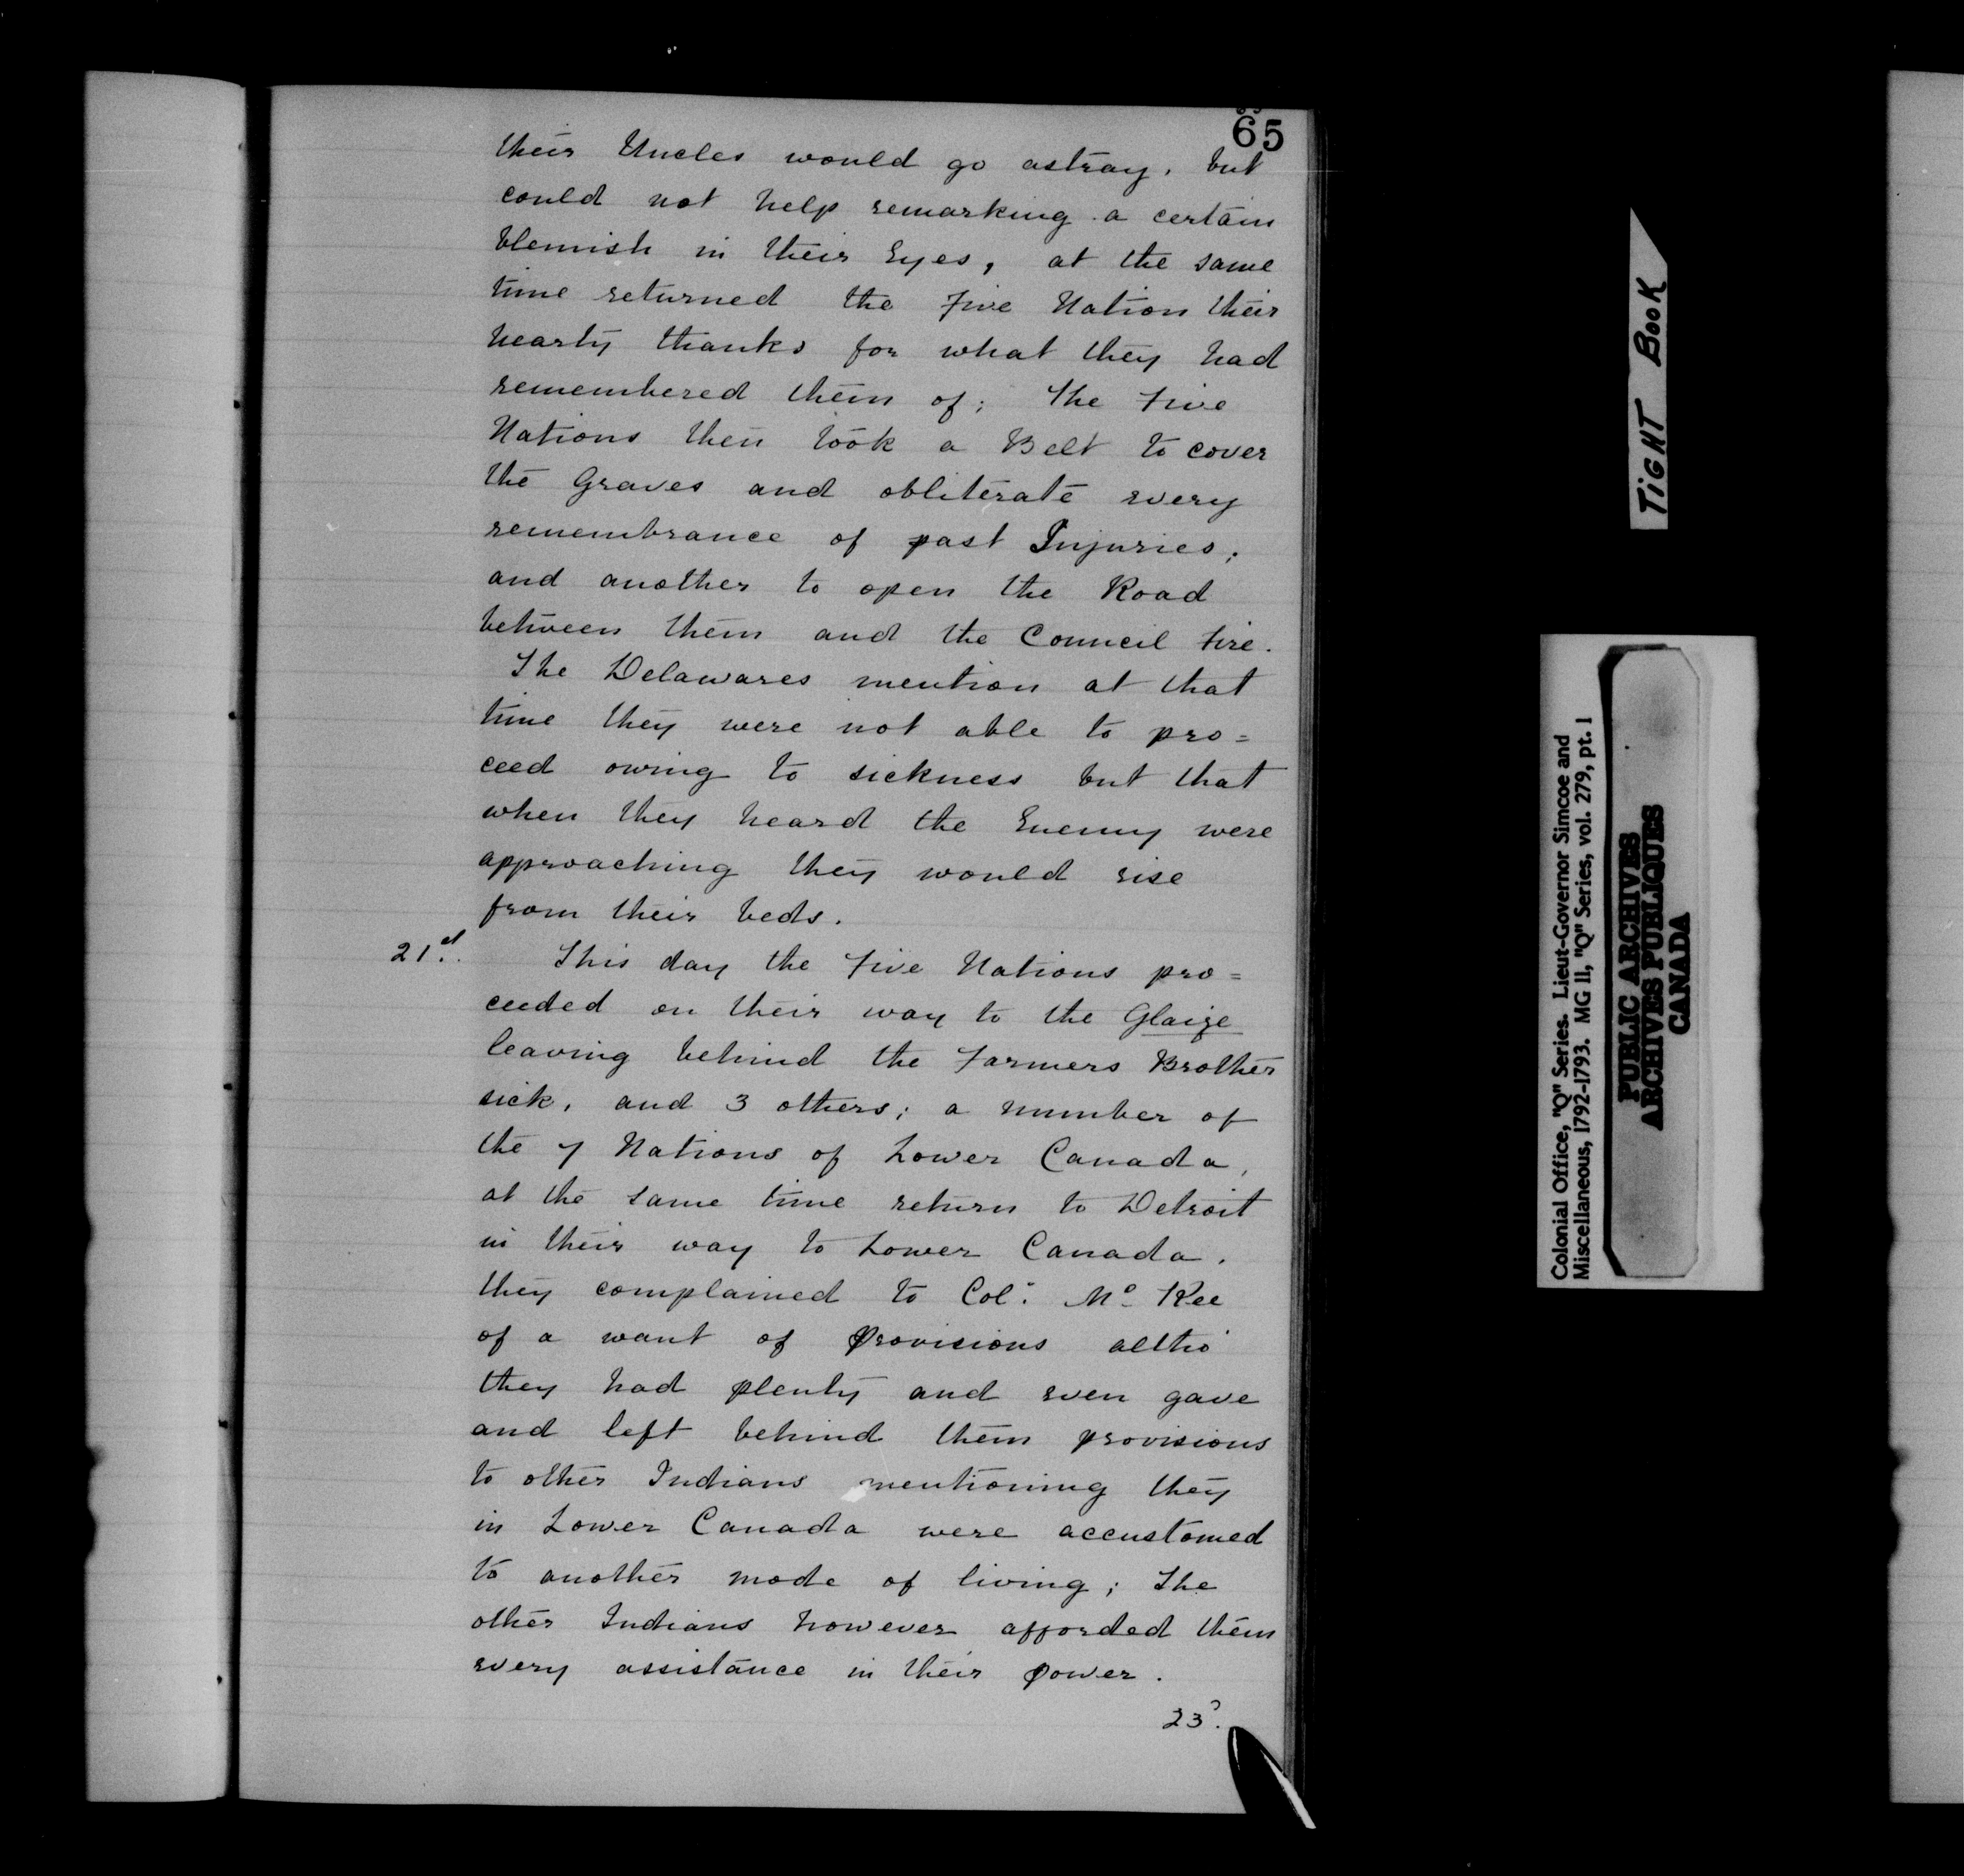 65
their Uncles would go astray, but
could not help remarking a certain
blemish in their Eyes, at the same
time returned the Five Nation their
hearty thanks for what they had
remembered them of; The Five
Nations then took a Belt to cover
the Graves and obliterate every
remembrance of past Injuries;
and another to open the Road
between them and the Council Fire.
The Delawares mention at that
time they were not able to pro=
ceed owing to sickness but that
when they heard the Enemy were
approaching they would rise
from their beds.
21st. This day the Five Nations pro=
ceeded on their way to the Glaize
leaving behind the Farmers Brother
sick, and 3 others; a number of
the 7 Nations of Lower Canada,
at the same time return to Detroit
in their way to Lower Canada.
they complained to Col: Mc Kee
of a want of Provisions altho'
they had plenty and even gave
and left behind them provisions
to other Indians mentioning they
in Lower Canada were accustomed
to another mode of living; The
other Indians however afforded them
every assistance in their power.
23d.
TIGHT BOOK
Colonial Office, "Q" Series. Lieut-Governor Simcoe and
Miscellaneous, 1792-1793. MG 11, "Q" Series, vol. 279, pt. 1
PUBLIC ARCHIVES
ARCHIVES PUBLIQUES
CANADA